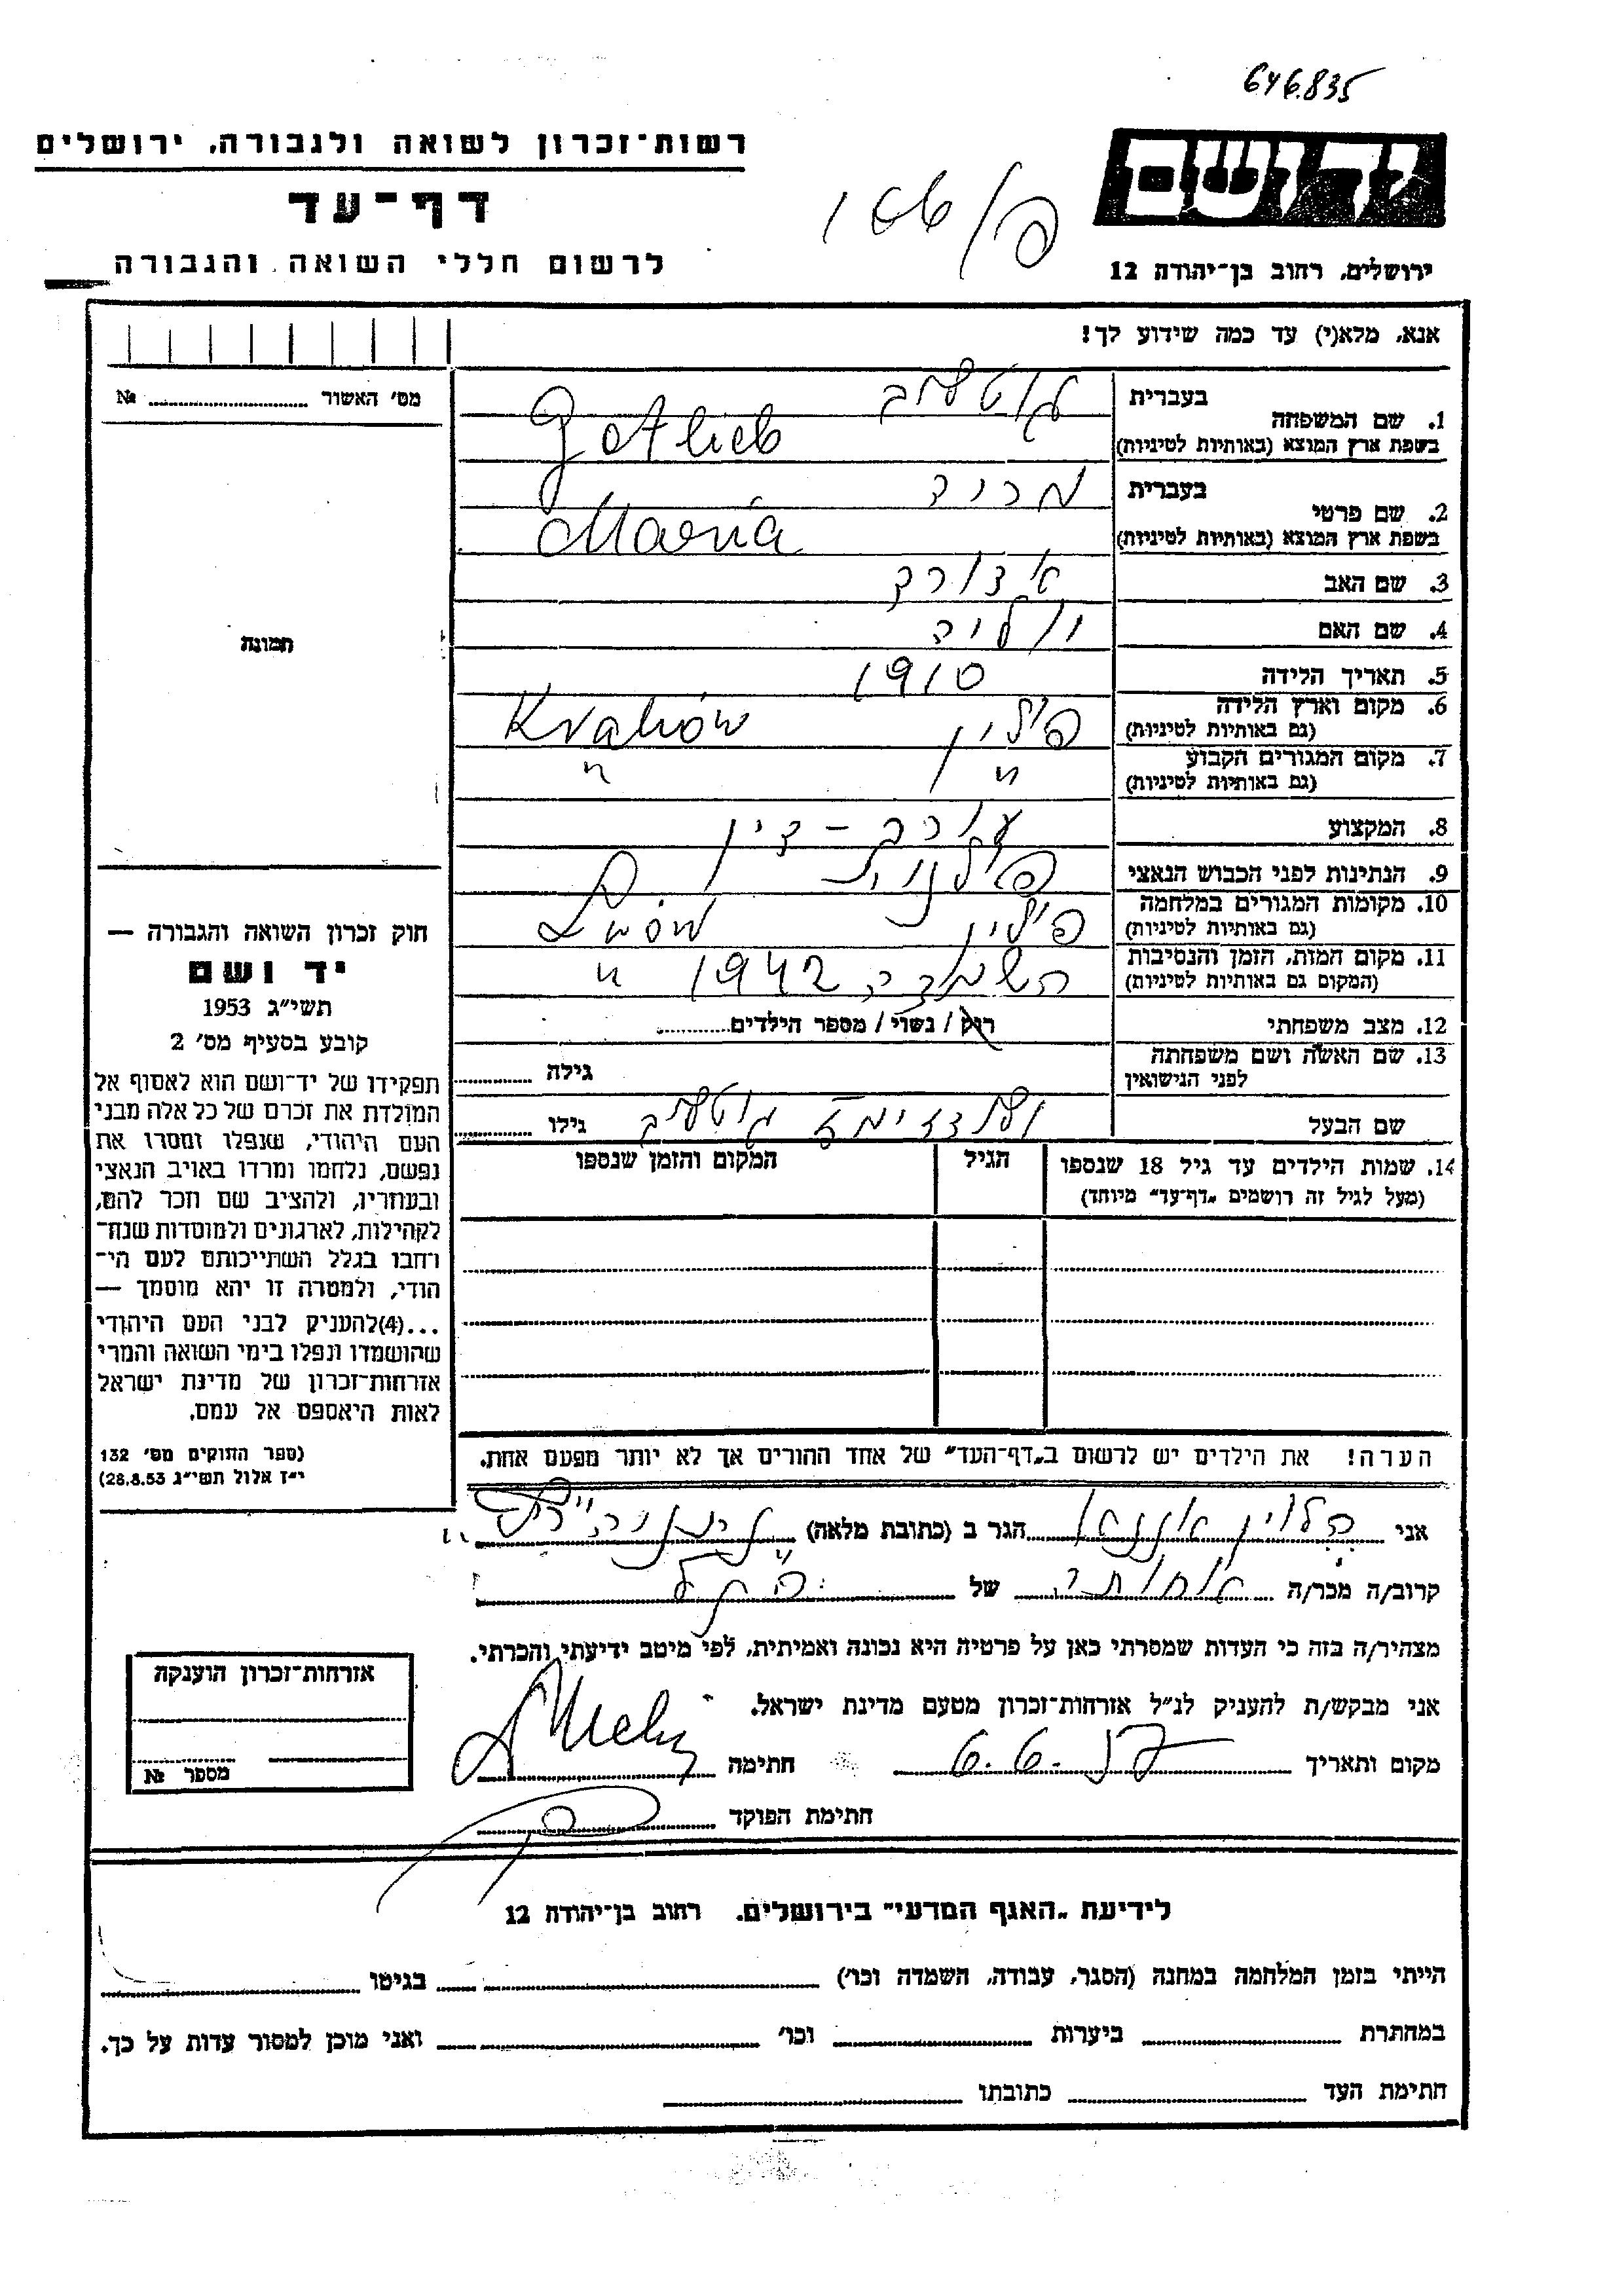 646835
רשות-זכרון לשואה ולגבורה, ירושלים
דף-עד
לרשום חללי השואה והגבורה
יד ושם
ירושלים, רחוב בן-יהודה 12
166/פ
אנא, מלא(י) עד כמה שידוע לך!
מס' האשור № 
תמונה
1. שם המשפחה בעברית גוטליב
בשפת ארץ המוצא (באותיות לטיניות) Gotlieb
2. שם פרטי בעברית מריה
בשפת ארץ המוצא (באותיות לטיניות) Maria
3. שם האב אדוארד
4. שם האם יוליה
5. תאריך הלידה 1910
6. מקום וארץ הלידה (גם באותיות לטיניות) פולין Kraków
7. מקום המגורים הקבוע (גם באותיות לטיניות) " "
8. המקצוע עורך-דין
9. הנתינות לפני הכבוש הנאצי פולנית
10. מקומות המגורים במלחמה (גם באותיות לטיניות) פולין Lwów
11. מקום המות, הזמן והנסיבות (המקום גם באותיות לטיניות) השמדה 1942 "
12. מצב משפחתי רוק / נשוי / מספר הילדים
13. שם האשה ושם משפחתה לפני הנישואין גילה
שם הבעל גוטליב גילו
14. שמות הילדים עד גיל 18 שנספו הגיל המקום והזמן שנספו
(מעל לגיל זה רושמים "דף-עד" מיוחד)
חוק זכרון השואה והגבורה —
יד ושם
תשי"ג 1953
קובע בסעיף מס' 2
תפקידו של יד-ושם הוא לאסוף אל
המולדת את זכרם של כל אלה מבני
העם היהודי, שנפלו ומסרו את
נפשם, נלחמו ומרדו באויב הנאצי
ובעוזריו, ולהציב שם וזכר להם,
לקהילות, לארגונים ולמוסדות שנח-
רחבו בגלל השתייכותם לעם הי-
הודי, ולמטרה זו יהא מוסמך —
...(4)להעניק לבני העם היהודי
שהושמדו ונפלו בימי השואה והמרי
אזרחות-זכרון של מדינת ישראל
לאות היאספם אל עמם.
(ספר החוקים מס' 132
י"ז אלול תשי"ג 28.8.53)
הערה! את הילדים יש לרשום ב"דף-העד" של אחד ההורים אך לא יותר מפעם אחת.
אני אננא הגר ב (כתובת מלאה)
קרוב/ה מכר/ה אחותה של הנ"ל
מצהיר/ה בזה כי העדות שמסרתי כאן על פרטיה היא נכונה ואמיתית, לפי מיטב ידיעתי והכרתי.
אני מבקש/ת להעניק לנ"ל אזרחות-זכרון מטעם מדינת ישראל.
מקום ותאריך 6.6.57 חתימה
חתימת הפוקד
אזרחות-זכרון הוענקה
מספר №
לידיעת "האגף המדעי" בירושלים, רחוב בן-יהודה 12
הייתי בזמן המלחמה במחנה (הסגר, עבודה, השמדה וכו') בגיטו
במחתרת ביערות וכו' ואני מוכן למסור עדות על כך.
חתימת העד כתובתו